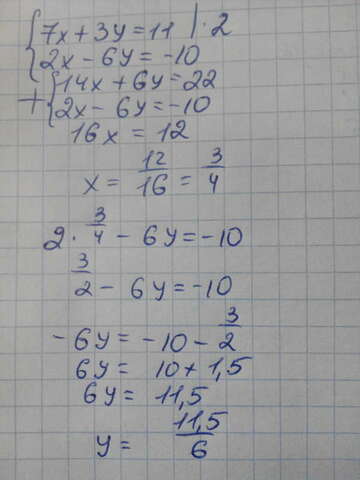 { 7x + 3y = 11 | · 2
2x - 6y = -10
+ { 14x + 6y = 22
2x - 6y = -10
16x = 12
x = 12/16 = 3/4
2 · 3/4 - 6y = -10
3/2 - 6y = -10
- 6y = -10 - 3/2
6y = 10 + 1,5
6y = 11,5
y = 11,5/6